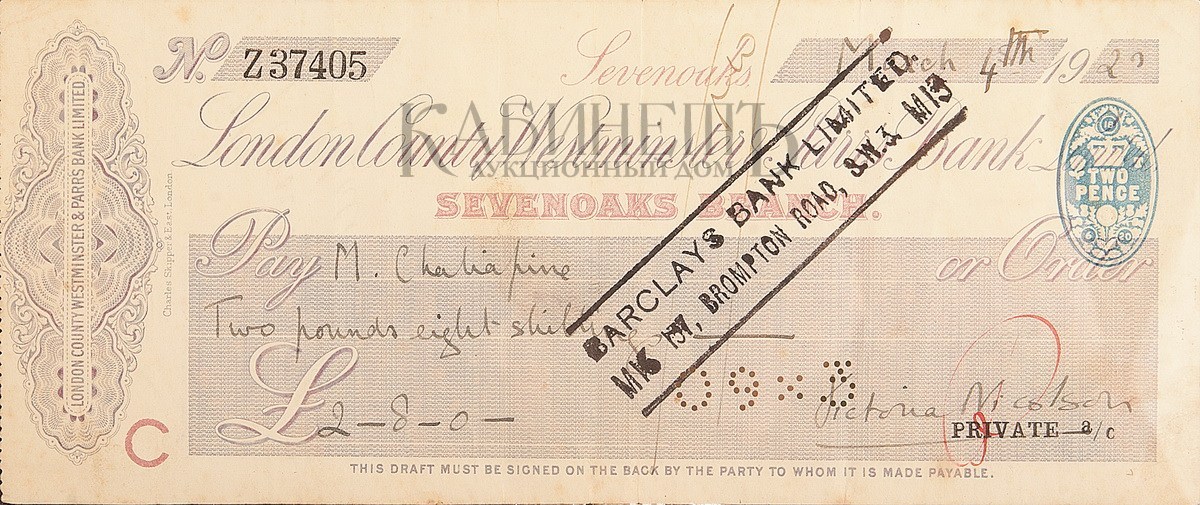 No. Z37405
Sevenoaks March 4th 192
КАБИНЕТЪ
АУКЦИОННЫЙ ДОМ
London County Westminster Bank Ld
SEVENOAKS BRANCH.
TWO PENCE
Pay M. Chaliapine or Order
Two pounds eight
£ 2-8-0-
BARCLAYS BANK LIMITED.
157, BROMPTON ROAD, S.W.3.
Victoria Nicolson
PRIVATE a/c
C
THIS DRAFT MUST BE SIGNED ON THE BACK BY THE PARTY TO WHOM IT IS MADE PAYABLE.
LONDON COUNTY WESTMINSTER & PARRS BANK LIMITED
Charles Skipper & East, London.